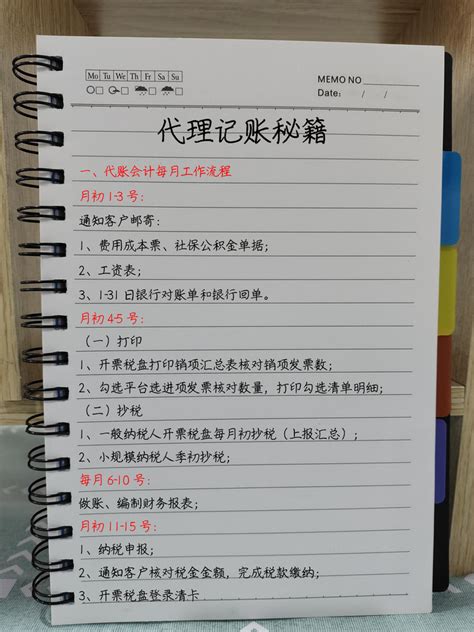 Mo Tu We Th Fr Sa Su
MEMO NO
Date: / /
代理记账秘籍
一、代账会计每月工作流程
月初1-3号:
通知客户邮寄:
1、费用成本票、社保公积金单据;
2、工资表;
3、1-31日银行对账单和银行回单。
月初4-5号:
(一)打印
1、开票税盘打印销项汇总表核对销项发票数;
2、勾选平台选进项发票核对数量,打印勾选清单明细;
(二)抄税
1、一般纳税人开票税盘每月初抄税(上报汇总);
2、小规模纳税人季初抄税;
每月6-10号:
做账、编制财务报表;
月初11-15号:
1、纳税申报;
2、通知客户核对税金金额,完成税款缴纳;
3、开票税盘登录清卡